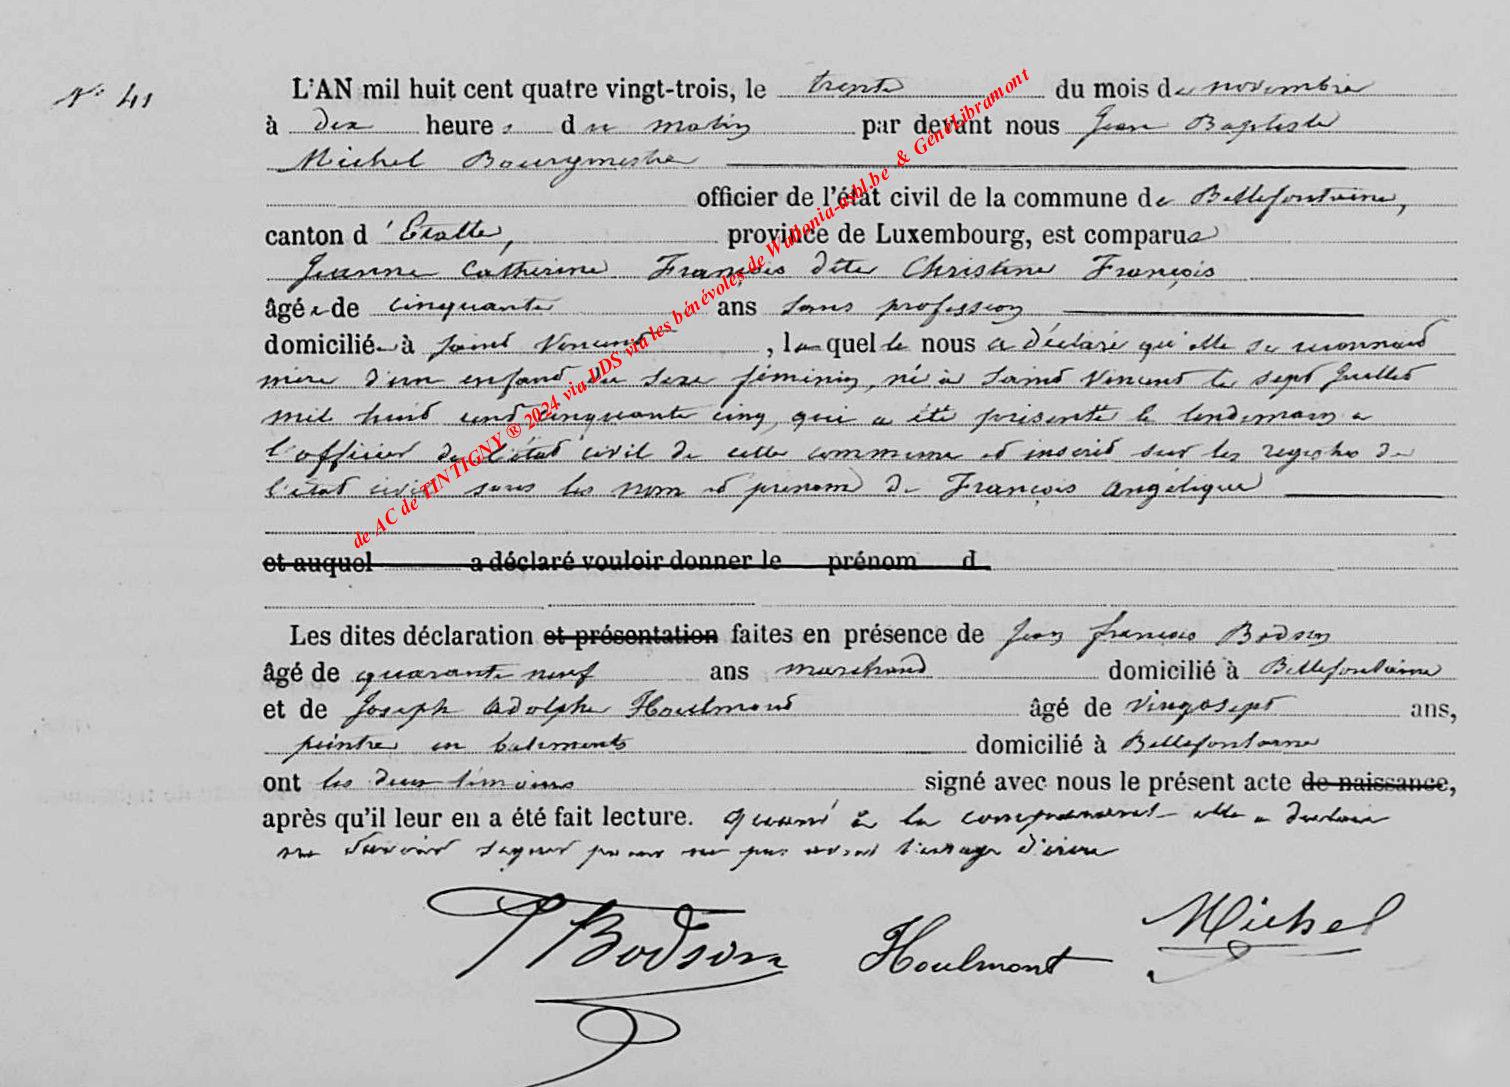 N° 41
L'AN mil huit cent quatre vingt-trois, le trente du mois de novembre
à dix heures du matin par devant nous Jean Baptiste
Michel Bourgmestre
officier de l'état civil de la commune de Bellefontaine,
canton d'Etalle, province de Luxembourg, est comparue
Jeanne Catherine François dite Christine François
âgée de cinquante ans sans profession
domiciliée à Saint Vincent, laquelle nous a déclaré qu'elle se reconnait
mère d'un enfant du sexe féminin, né à Saint Vincent le sept Juillet
mil huit cent cinquante cinq, qui a été présenté le lendemain a
l'officier de l'état civil de cette commune et inscrit sur les registres de
l'état civil sous les nom et prénom de François Angélique
et auquel a déclaré vouloir donner le prénom d
Les dites déclaration et présentation faites en présence de Jean françois Bodson
âgé de quarante neuf ans marchand domicilié à Bellefontaine
et de Joseph Adolphe Houlmont âgé de vingt sept ans,
peintre en batiments domicilié à Bellefontaine
ont les deux témoins signé avec nous le présent acte de naissance,
après qu'il leur en a été fait lecture. Quant à la comparante elle a déclaré
ne savoir signer pour ne pas avoir l'usage d'écrire
Bodson Houlmont Michel
de AC de TINTIGNY ® 2024 via LDS via les bénévoles de Wallonia-asbl.be & GénéLibramont